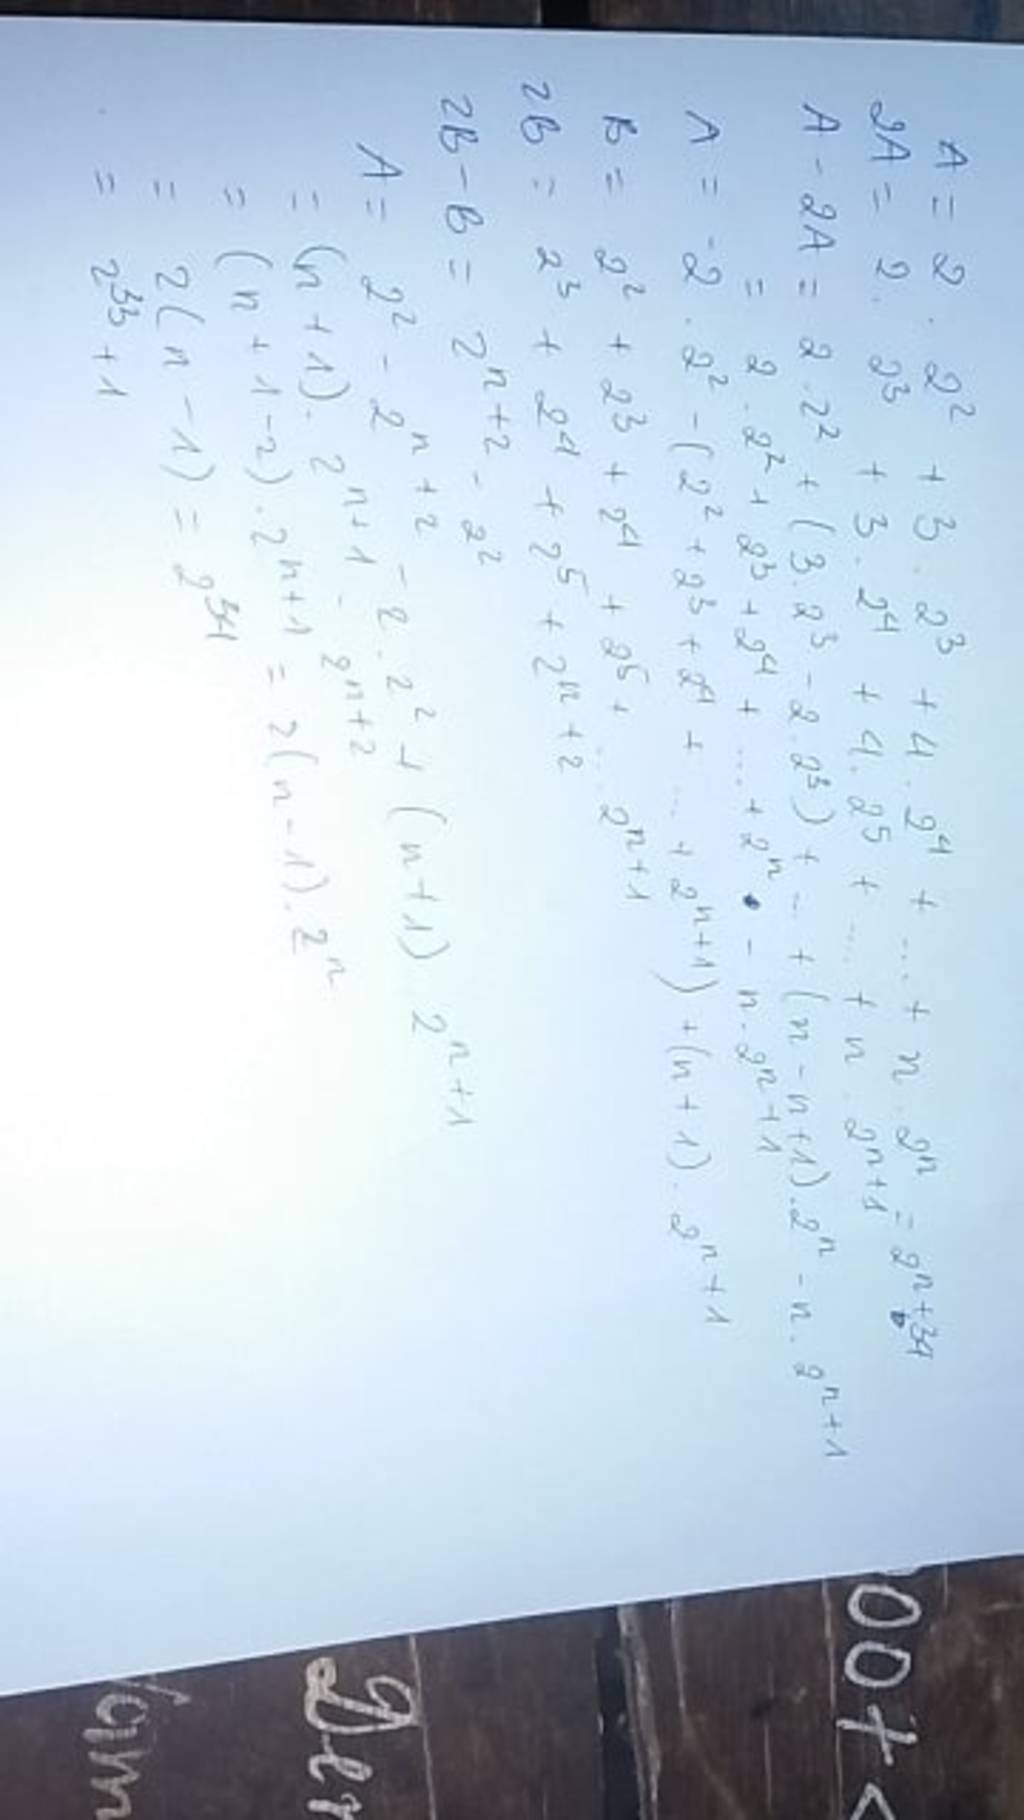 A = 2 . 2² + 3 . 2³ + 4 . 2⁴ + ... + n . 2ⁿ = 2ⁿ⁺³⁴
2A = 2 . 2³ + 3 . 2⁴ + 4 . 2⁵ + .... + n . 2ⁿ⁺¹
A - 2A = 2 . 2² + (3 . 2³ - 2 . 2³) + ... + (n - n + 1) . 2ⁿ - n . 2ⁿ⁺¹
= 2 . 2² + 2³ + 2⁴ + ... + 2ⁿ - n . 2ⁿ⁺¹
A = -2 . 2² - (2² + 2³ + 2⁴ + ... + 2ⁿ⁺¹) + (n + 1) . 2ⁿ⁺¹
B = 2² + 2³ + 2⁴ + 2⁵ + ... 2ⁿ⁺¹
2B = 2³ + 2⁴ + 2⁵ + 2ⁿ⁺²
2B - B = 2ⁿ⁺² - 2²
A = 2² - 2ⁿ⁺² - 2 . 2² + (n + 1) 2ⁿ⁺¹
= (n + 1) . 2ⁿ⁺¹ - 2ⁿ⁺²
= (n + 1 - 2) . 2ⁿ⁺¹ = 2(n - 1) . 2ⁿ
= 2(n - 1) = 2³⁴
= 2³³ + 1